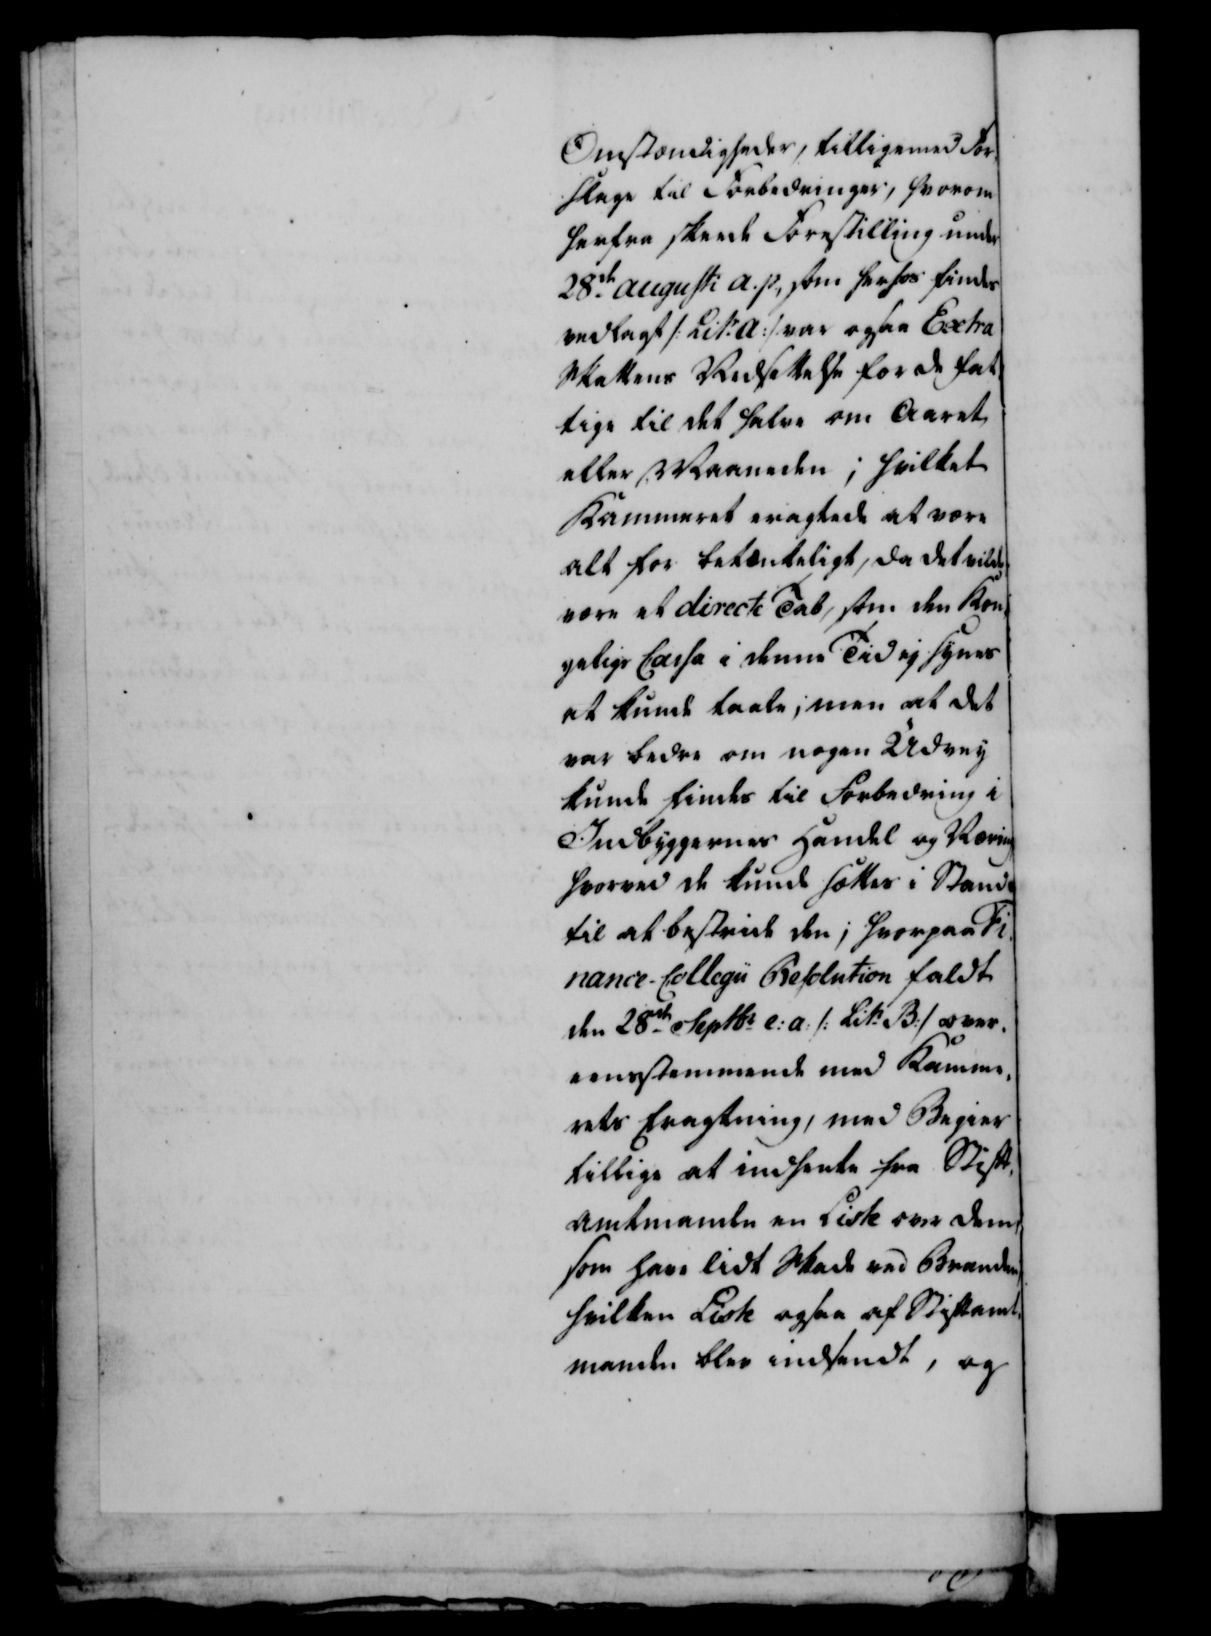 Omstændigheder, tilligemed For,
slage til Forbedringer, hvorom
herfra skeede Forestilling under
28de augusti a. p., som herhos findes
vedlagt /: Litr. A :/ var ogsaa Extra
Skattens Nedsettelse for de fat,
tige til det halve om Aaret
eller Maaneden; hvilket
Kammeret eragtede at være
alt for betænkeligt, da det vilde
være et directe Tab, som den Kon,
gelige Cassa i denne Tid ej synes
at kunde taale; men at det
var bedre om nogen Udvej
kunde findes til Forbedring i
Indbyggernes Handel og Næring
hvorved de kunde sættes i Stand
til at bestride den; hvorpaa Fi,
nance-Collegii Resolution faldt
den 28de Septbr e: a: /: Litr B :/ over,
eensstemmende med Kamme,
rets Eragtning, med Begier
tillige at indhente fra Stift,
amtmanden en Liste over dem,
som have lidt Skade ved Branden,
hvilken Liste ogsaa af Stiftamt,
manden blev indsendt, og